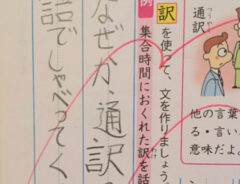 通訳
つうやく
他の言葉
る・言い
意味だよ
訳を使って、文を作りましょう。
例
集合時間におくれた訳を話
なぜか、通訳
話でしゃべってく